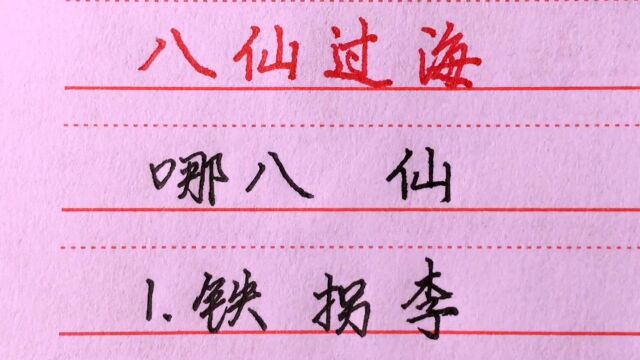 八仙过海
哪八 仙
1.铁拐李